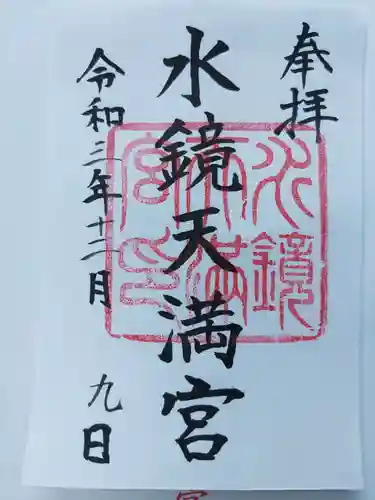 奉拝
水鏡天満宮
令和三年十二月九日
水鏡
天満
宮印